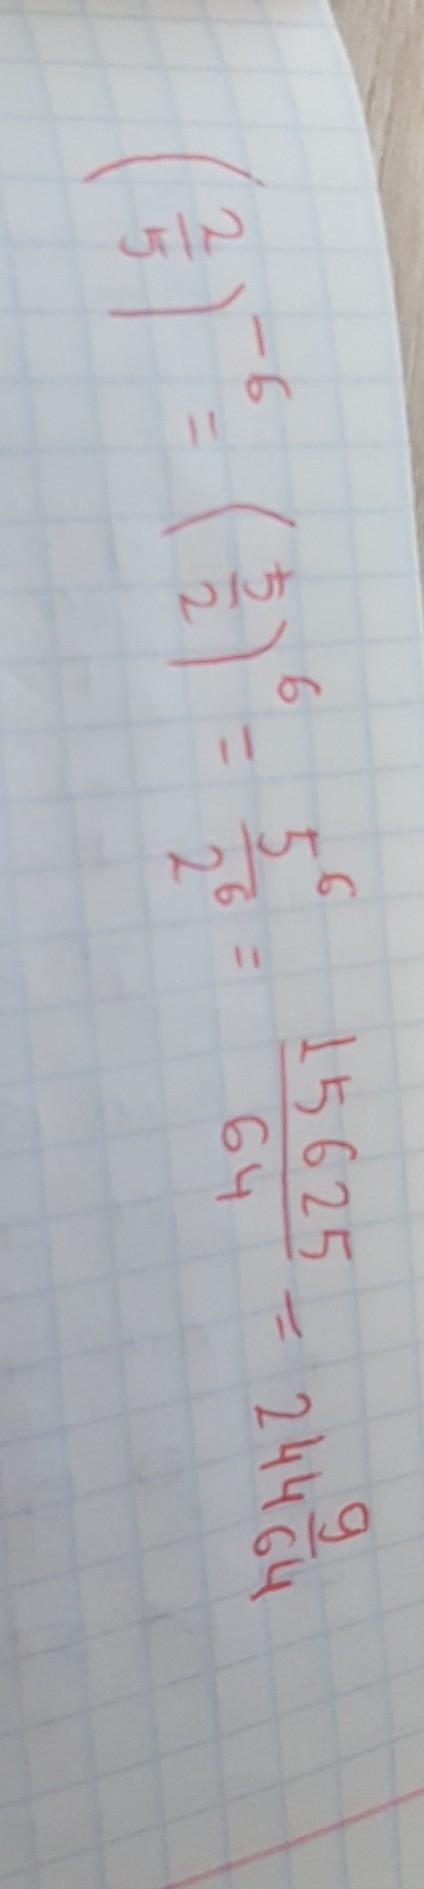 (2/5)^-6 = (5/2)^6 = 5^6/2^6 = 15625/64 = 244 9/64